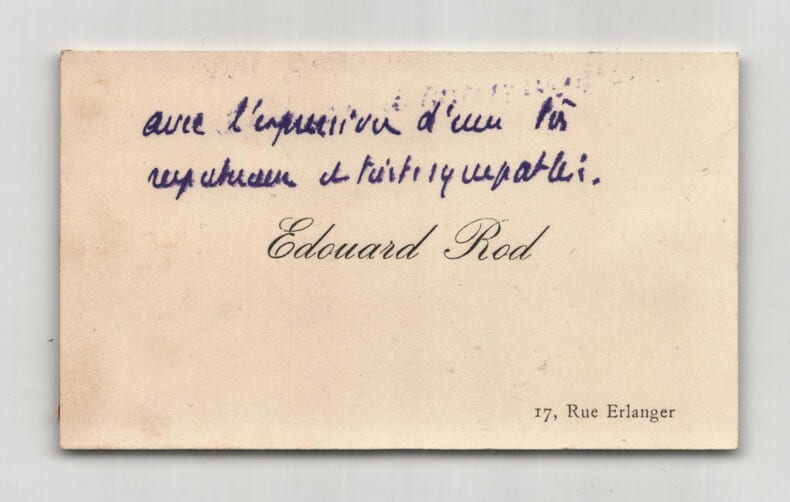 avec l'expression d'une très
respectueuse et très sympathie.
Edouard Rod
17, Rue Erlanger